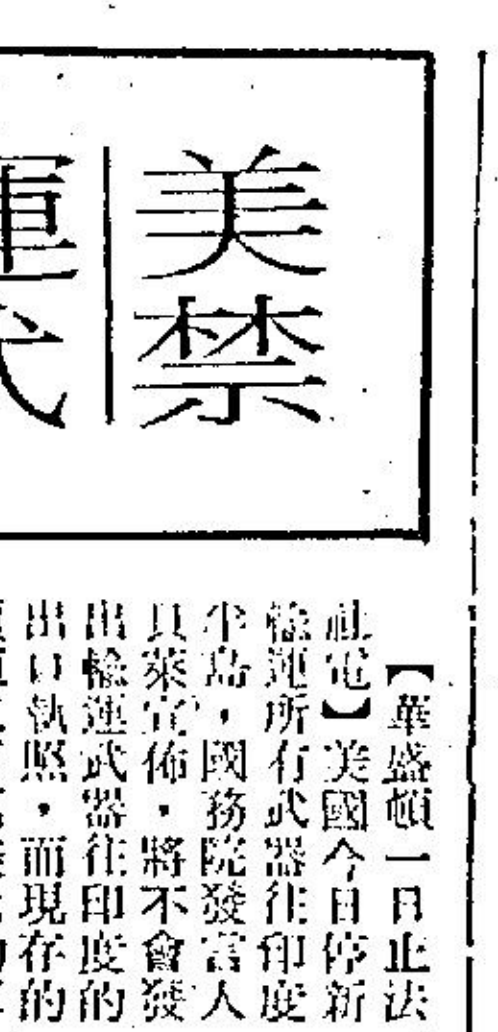 美禁
【華盛頓一日止法
社電】美國今日停新
輸運所有武器往印度
半島，國務院發言人
貝萊宣佈，將不會發
出輸運武器往印度的
出口執照，而現存的